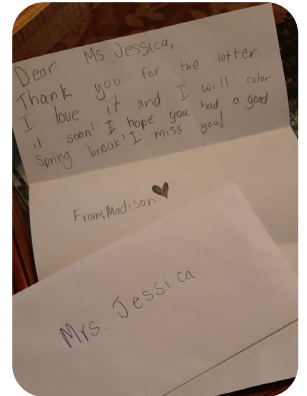 Dear Ms Jessica,
Thank you for the letter
I love it and I will color
it soon! I hope you had a good
Spring break! I miss you!
From, Madison
Mrs. Jessica